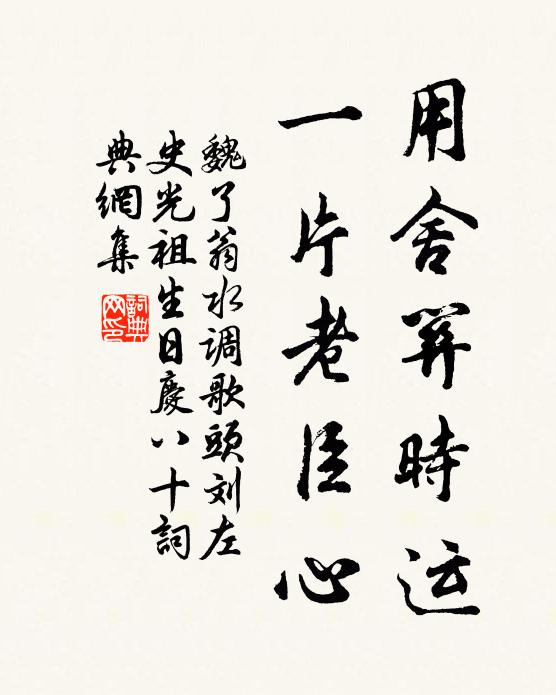 用舍關時运
一片老臣心
魏了翁水调歌頭刘左
史光祖生日慶八十詞
典網集
詞典
网印